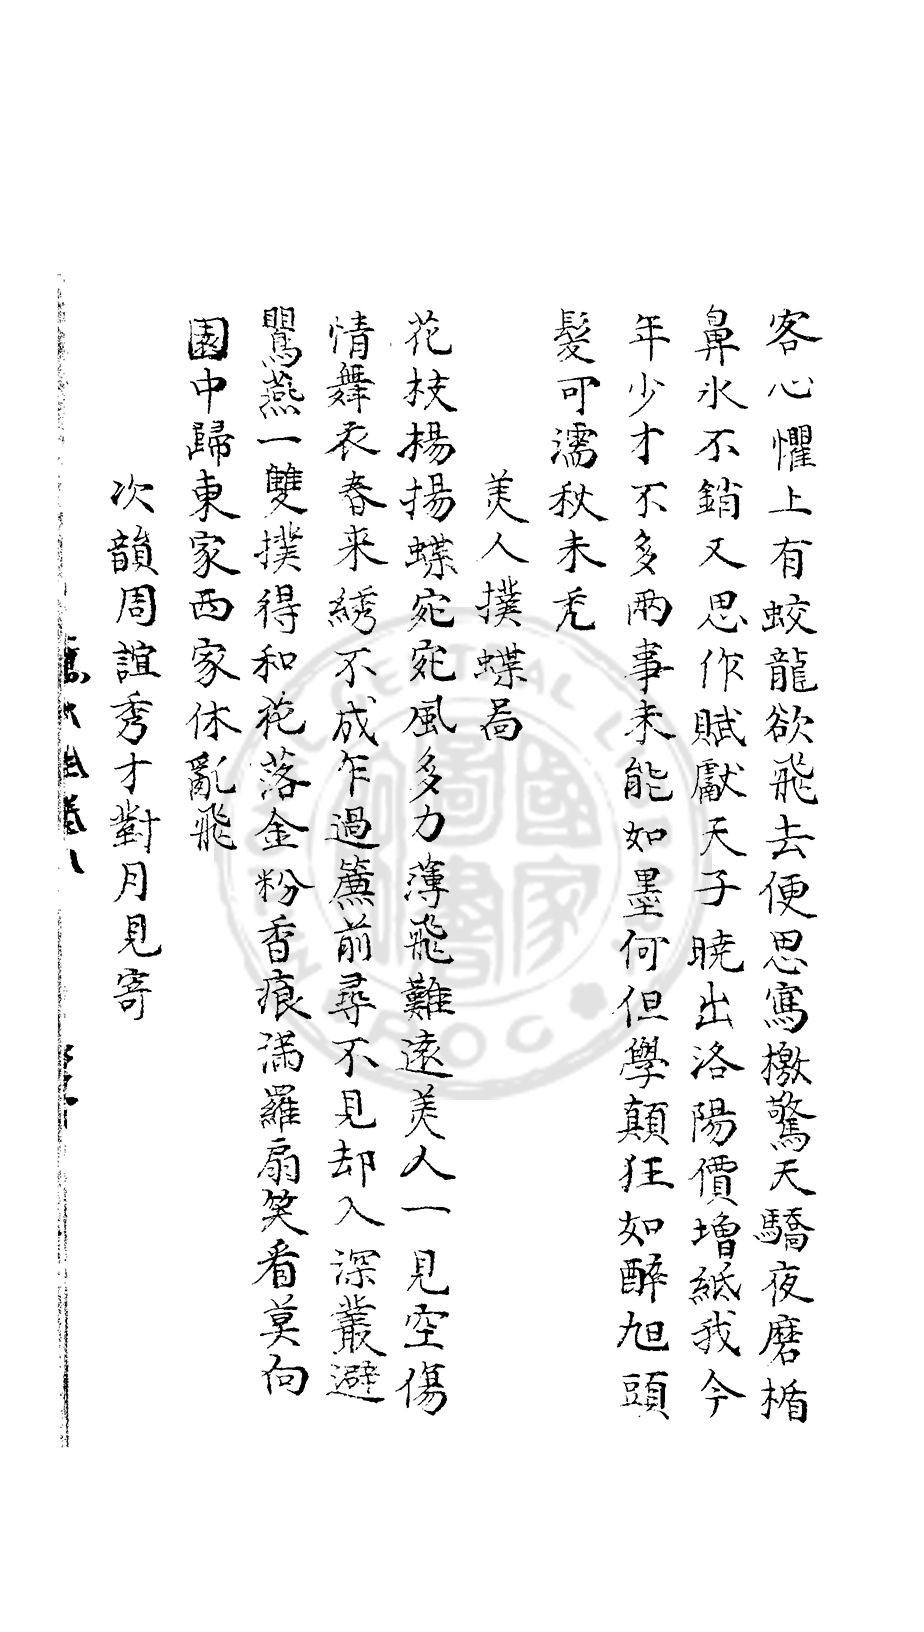 客心懼上有蛟龍欲飛去便思寫檄驚天驕夜磨楯
鼻氷不銷又思作賦獻天子曉出洛陽價增紙我今
年少才不多兩事未能如墨何但學顛狂如醉旭頭
髮可濡秋未禿
美人撲蝶啚
花枝楊揚蝶宛宛風多力薄飛難遠美人一見空傷
情舞衣春来綉不成乍過簾前尋不見却入深叢避
鸎燕一雙撲得和花落金粉香痕滿羅扇笑看莫向
園中歸東家西家休亂飛
次韻周誼秀才對月見寄